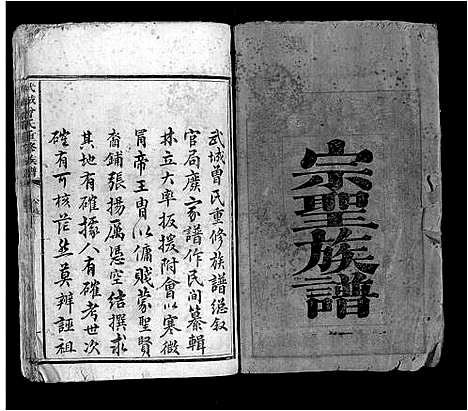 宗聖族譜
武城曾氏重修族譜總叙
官局廢家譜作民間纂輯
林立大率扳援附會以寒微
冐帝王胄以傭賤蒙聖賢
裔鋪張揚厲憑空結撰求
其地有確據人有確考世次
確有可核茫無莫辧誣祖
武城曾氏重修族譜